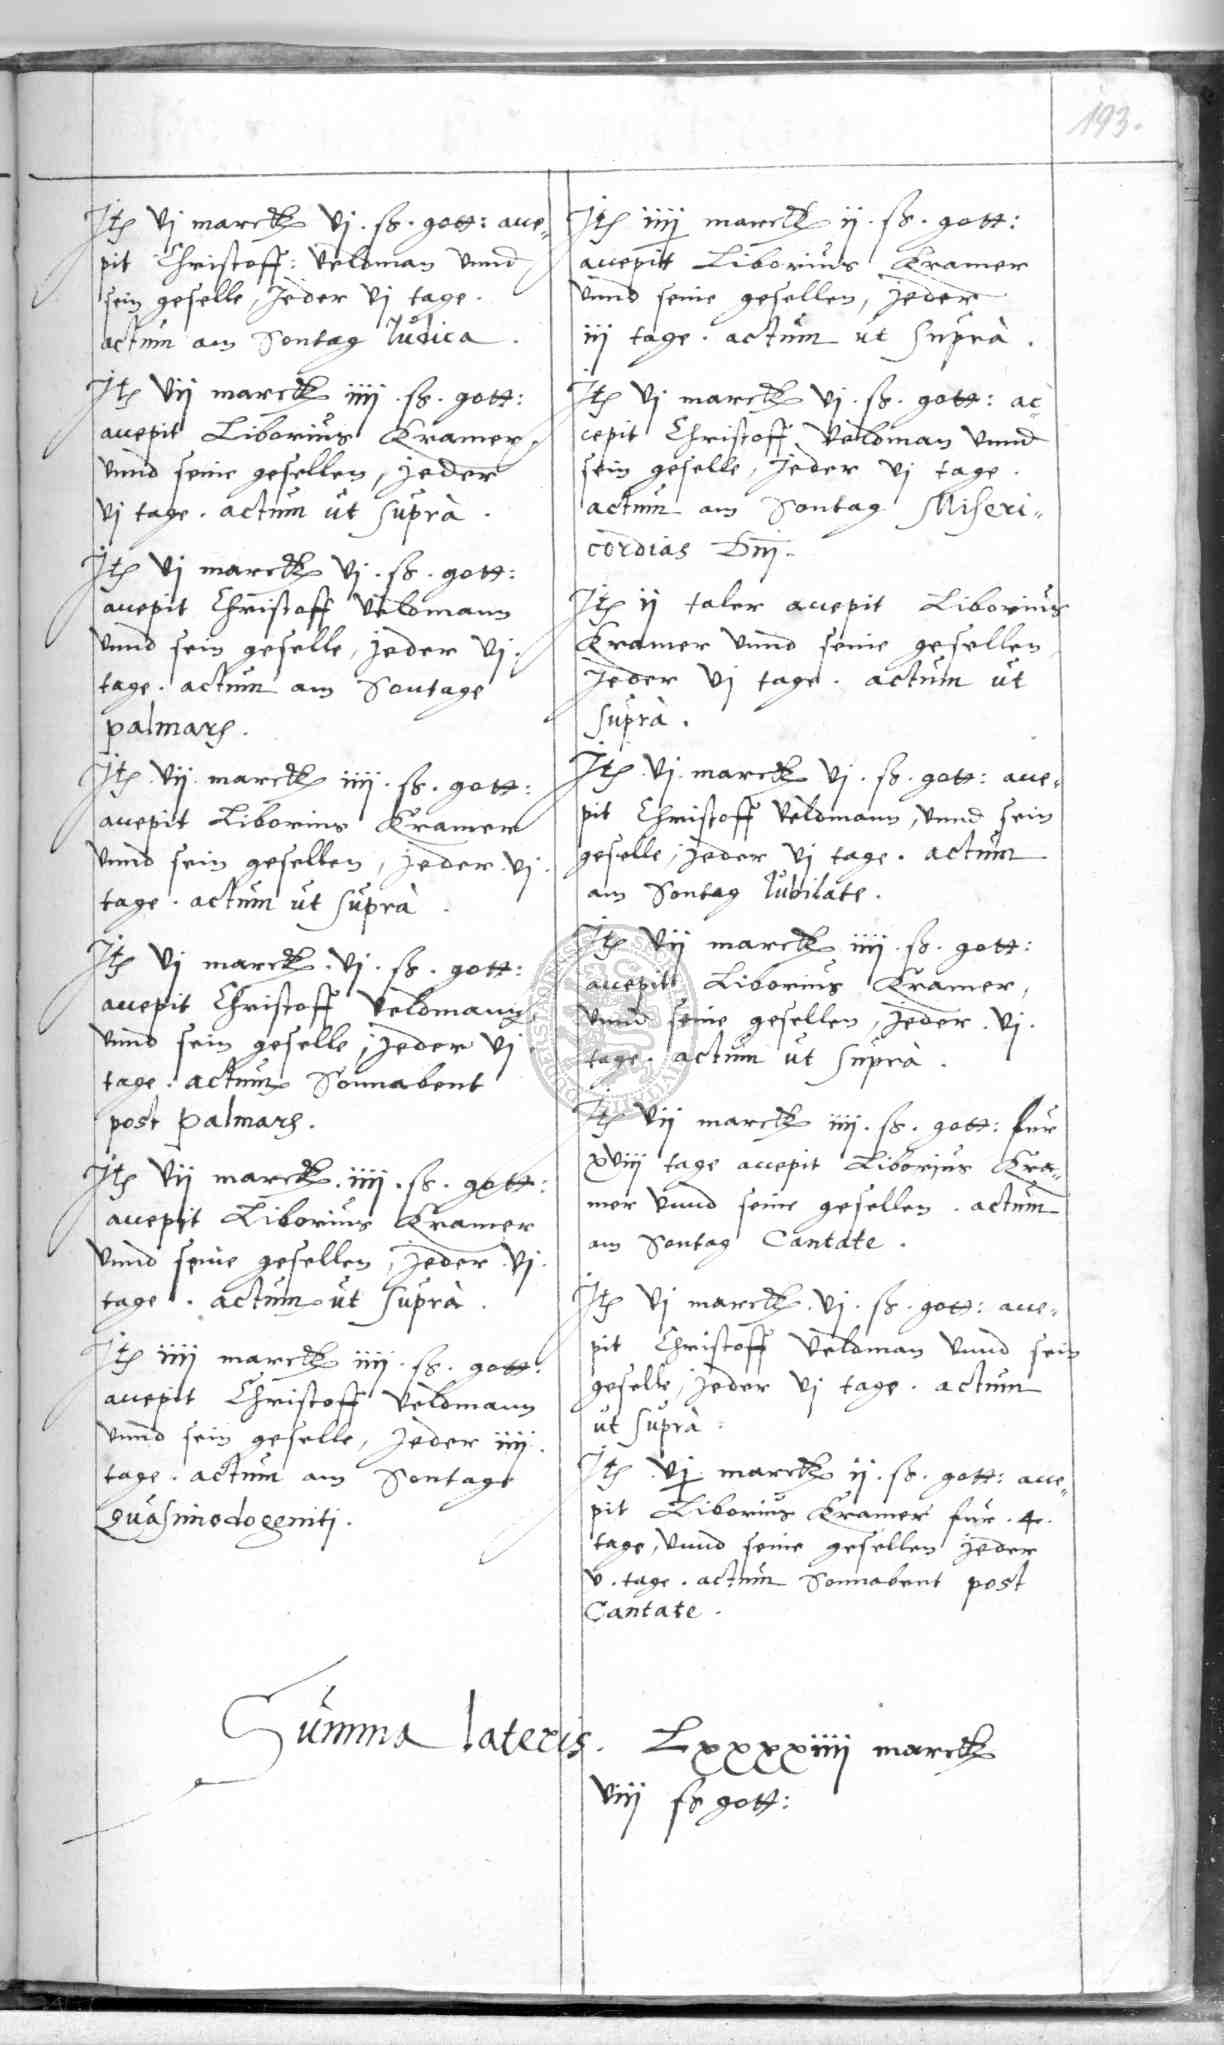 193.
Itē vj marck vj . ß . gott: acce-
pit Christoff: Veldman vnnd
sein geselle, Jeder vj tage .
actum am Sontag Judica .
Itē vij marck iiij . ß . gott:
accepit Liborius Kramer,
vnnd seine gesellen, jeder
vj tage . actum ut suprà .
Itē vj marck vj . ß . gott:
accepit Christoff Veldmann
vnnd sein geselle, jeder vj .
tage . actum am Sontage
palmarū .
Itē vij marck iiij . ß . gott:
accepit Liborius Kramer
vnnd sein gesellen, jeder . vj .
tage . actum ut suprà .
Itē vj marck . vj . ß . gott:
accepit Christoff Veldmann,
vnnd sein geselle, jeder vj .
tage . actum Sonnabent
post palmarū .
Itē vij marck . iiij . ß . gott:
accepit Liborius Kramer
vnnd seine gesellen, jeder . vj .
tage . actum ut suprà .
Itē iiij marck iiij . ß . gott:
accepit Christoff Veldmann
vnnd sein geselle, jeder iiij .
tage . actum am Sontage
Quasimodogeniti .
Itē iiij marck ij . ß . gott:
accepitt Liborius Kramer
vnnd seine gesellen, jeder
iij tage . actum ut suprà .
Itē vj marck vj . ß . gott: ac-
cepit Christoff Veldman vnnd
sein geselle, Jeder vj tage .
actum am Sontag Miseri-
cordias Dnj .
Itē ij taler accepit Liborius
Kramer vnnd seine gesellen
Jeder vj tage . actum ut
suprà .
Itē . vj . marck vj . ß . gott: acce-
pit Christoff Veldmann, vnnd sein
geselle, jeder vj tage . actum
am Sontag Jubilate .
Itē vij marck iiij . ß . gott:
accepitt Liborius Kramer,
vnnd seine gesellen, jeder . vj .
tage . actum ut suprà .
Itē vij marck iiij . ß . gott: fur
xviij tage accepit Liborius Kra-
mer vnnd seine gesellen . actum
am Sontag Cantate .
Itē vj marck . vj . ß . gott: acce-
pit Christoff Veldman vnnd sein
geselle, jeder vj tage . actum
ut suprà .
Itē . vj marck ij . ß . gott: acce-
pit Liborius Kramer fur . 4 .
tage, vnnd seine gesellen jeder
v . tage . actum Sonnabent post
Cantate .
Summa lateris . Lxxxxiiij marck
viij ß gott: